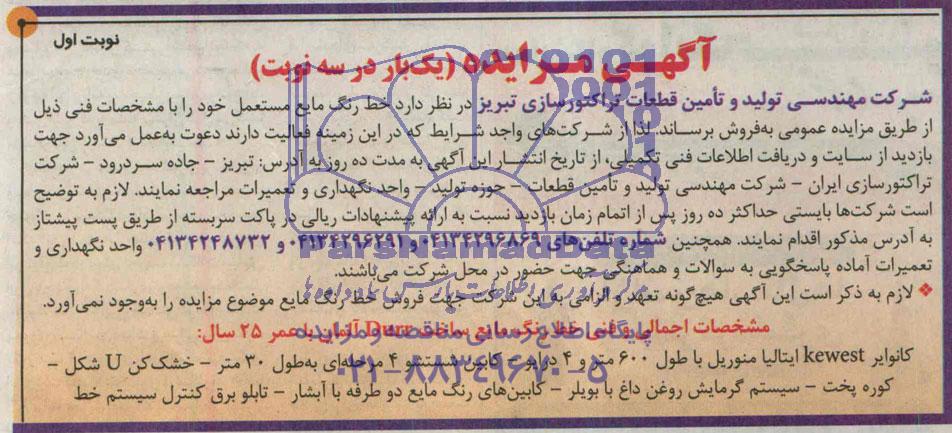 نوبت اول
آگهـی مـزایده (یک‌بار در سه نوبت)
شـرکت مهندسـی تولید و تأمین قطعات تراکتورسازی تبریز در نظر دارد خط رنگ مایع مستعمل خود را با مشخصات فنی ذیل
از طریق مزایده عمومی به‌فروش برساند. لذا از شـرکت‌های واجد شـرایط که در این زمینه فعالیت دارند دعوت به‌عمل می‌آورد جهت
بازدید از سـایت و دریافت اطلاعات فنی تکمیلی، از تاریخ انتشـار این آگهی به مدت ده روز به آدرس: تبریز – جاده سـردرود – شرکت
تراکتورسازی ایران – شرکت مهندسی تولید و تأمین قطعات – حوزه تولید – واحد نگهداری و تعمیرات مراجعه نمایند. لازم به توضیح
است شرکت‌ها بایستی حداکثر ده روز پس از اتمام زمان بازدید نسبت به ارائه پیشنهادات ریالی در پاکت سربسته از طریق پست پیشتاز
به آدرس مذکور اقدام نمایند. همچنین شماره تلفن‌های ۰۴۱۳۴۲۹۶۸۶۹ و ۰۴۱۳۴۲۹۶۲۹۱ و ۰۴۱۳۴۲۴۸۷۳۲ واحد نگهداری و
تعمیرات آماده پاسخگویی به سوالات و هماهنگی جهت حضور در محل شرکت می‌باشند.
❖ لازم به ذکر است این آگهی هیچ‌گونه تعهد و الزامی به این شرکت جهت فروش خط رنگ مایع موضوع مزایده را به‌وجود نمی‌آورد.
مشخصات اجمالی و فنی خط رنگ مایع ساخت Durr آلمان با عمر ۲۵ سال:
کانوایر kewest ایتالیا منوریل با طول ۶۰۰ متر و ۴ درایو – کابین شستشو ۴ مرحله‌ای به‌طول ۳۰ متر – خشک‌کن U شکل –
کوره پخت – سیستم گرمایش روغن داغ با بویلر – کابین‌های رنگ مایع دو طرفه با آبشار – تابلو برق کنترل سیستم خط
ParsNamadData
پایگاه اطلاع رسانی مناقصه و مزایده
۰۲۱-۸۸۳۴۹۶۷۰-۵